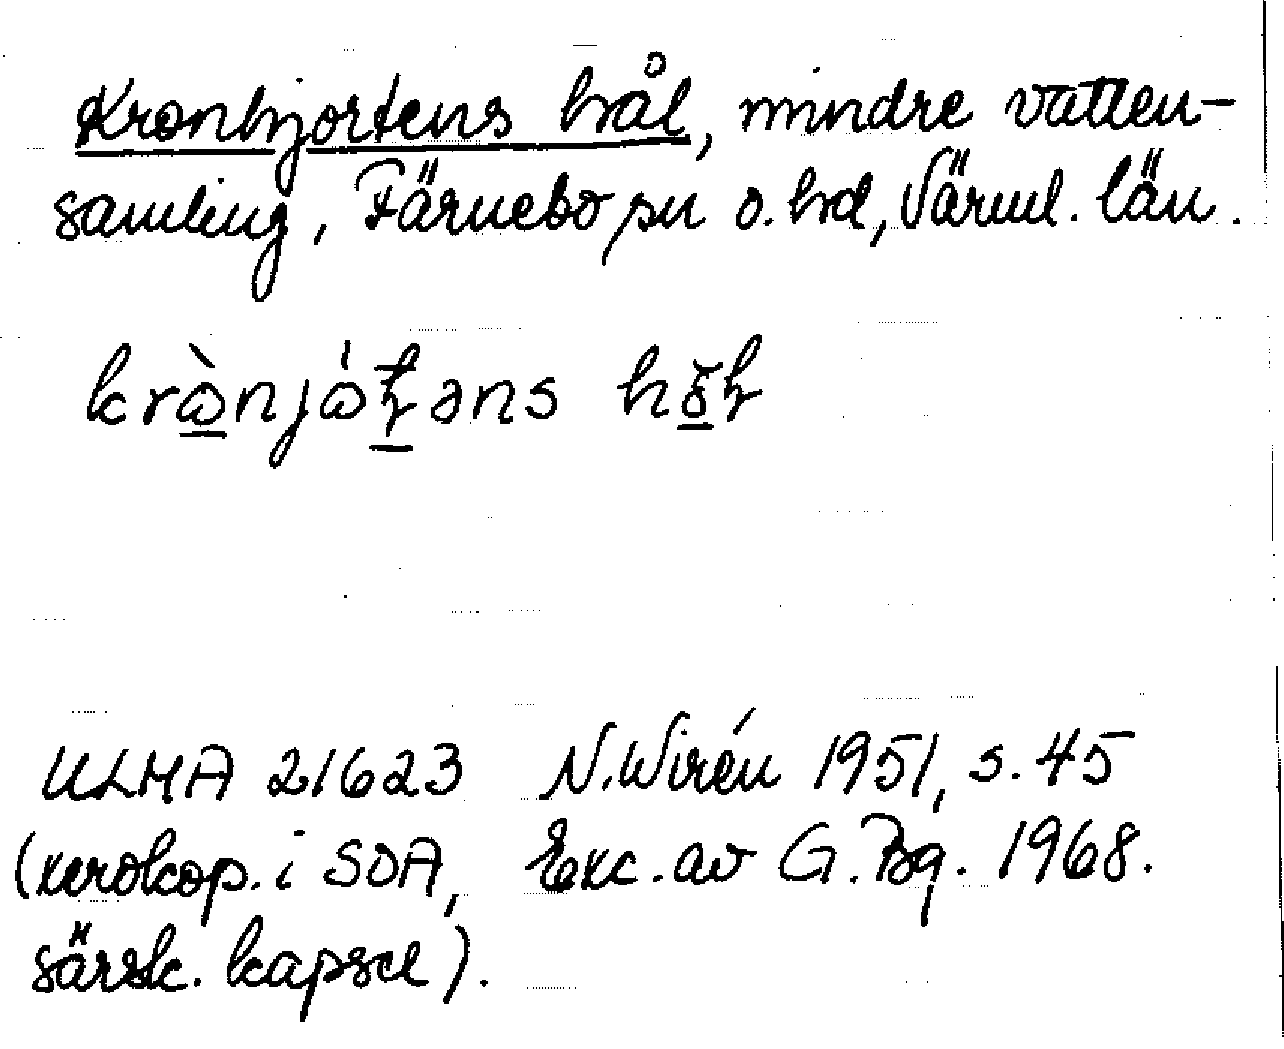 Kronhjortens hål, mindre vatten-
samling, Färnebo sn o. hd, Värml. län.
ULMA 21623 N. Wirén 1951, s. 45
(xerokop. i SOA, Exc. av G. Bg. 1968.
särsk. kapsel).